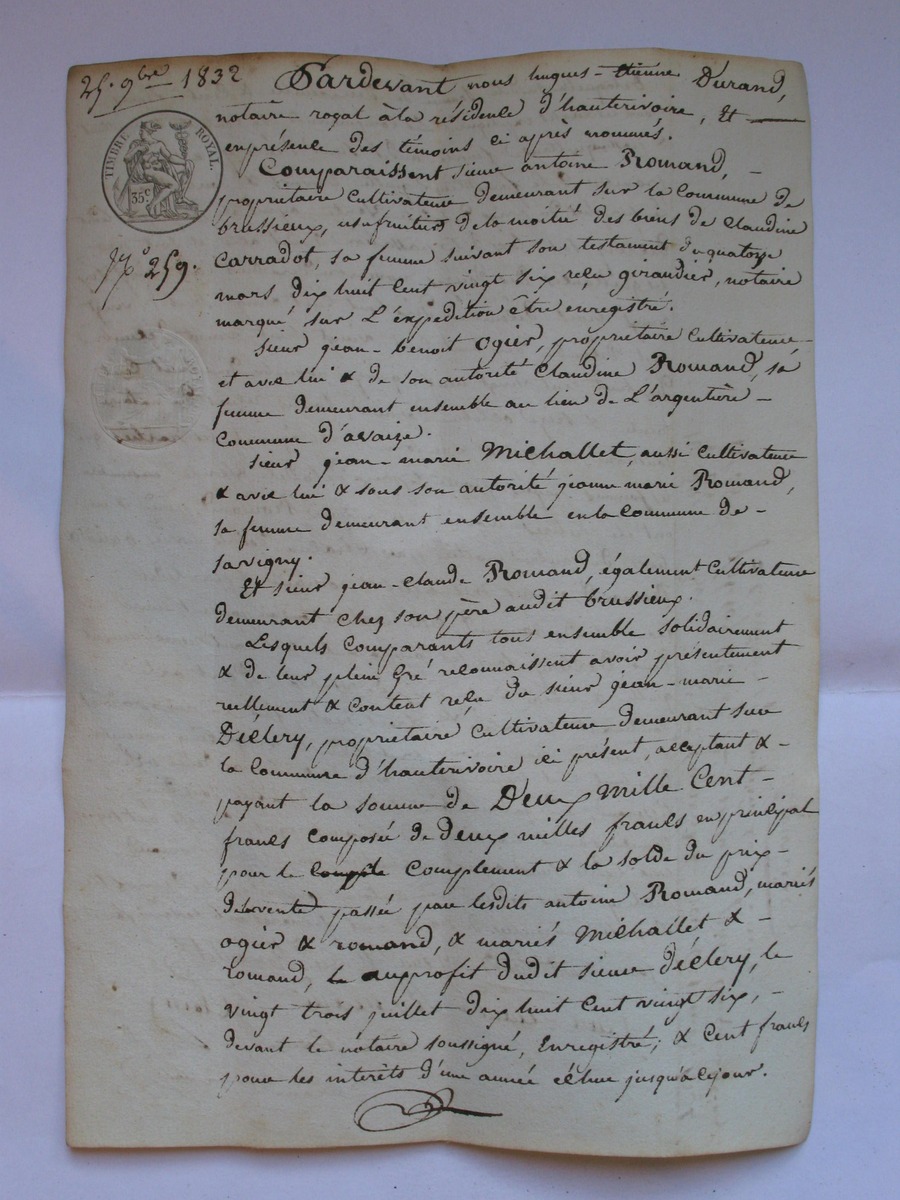 25. 9bre 1832
Pardevant nous hugues-étienne Durand,
notaire royal à la résidence d'hauterivoire, Et
en présence des témoins ci après nommés.
Comparaissent sieur antoine Romand,
propriétaire Cultivateur demeurant sur la Commune de
brussieux, usufruitier de la moitié des biens de Claudine
Carradot, sa femme suivant son testament du quatorze
mars dix huit Cent vingt six reçu girandier, notaire
marqué sur L'expédition être enregistré.
TIMBRE ROYAL.
35c
No 259.
sieur jean-benoit Ogier, propriétaire Cultivateur
et avec lui & de son autorité Claudine Romand, sa
femme demeurant ensemble au lieu de L'argentière
Commune d'avaize.
sieur jean-marie Michallet, aussi Cultivateur
& avec lui & sous son autorité jeanne marie Romand,
sa femme demeurant ensemble en la Commune de
savigny.
Et sieur jean-Claude Romand, également Cultivateur
demeurant chez son père audit brussieux.
Lesquels Comparants tous ensemble solidairement
& de leur plein gré reconnaissent avoir présentement
reellement & Content reçu du sieur jean-marie
Déclery, propriétaire Cultivateur demeurant sur
la Commune d'hauterivoire ici présent, acceptant &
payant la somme de Deux Mille Cent
francs composée de deux milles francs en principal
pour le Complement & la solde du prix
de vente passée par lesdits antoine Romand, mariés
ogier & romand, & mariés Michallet &
romand, au profit dudit sieur déclery, le
vingt trois juillet dix huit Cent vingt six,
devant le notaire soussigné, Enregistré; & Cent francs
pour les interêts d'une année échue jusqu'à ce jour.